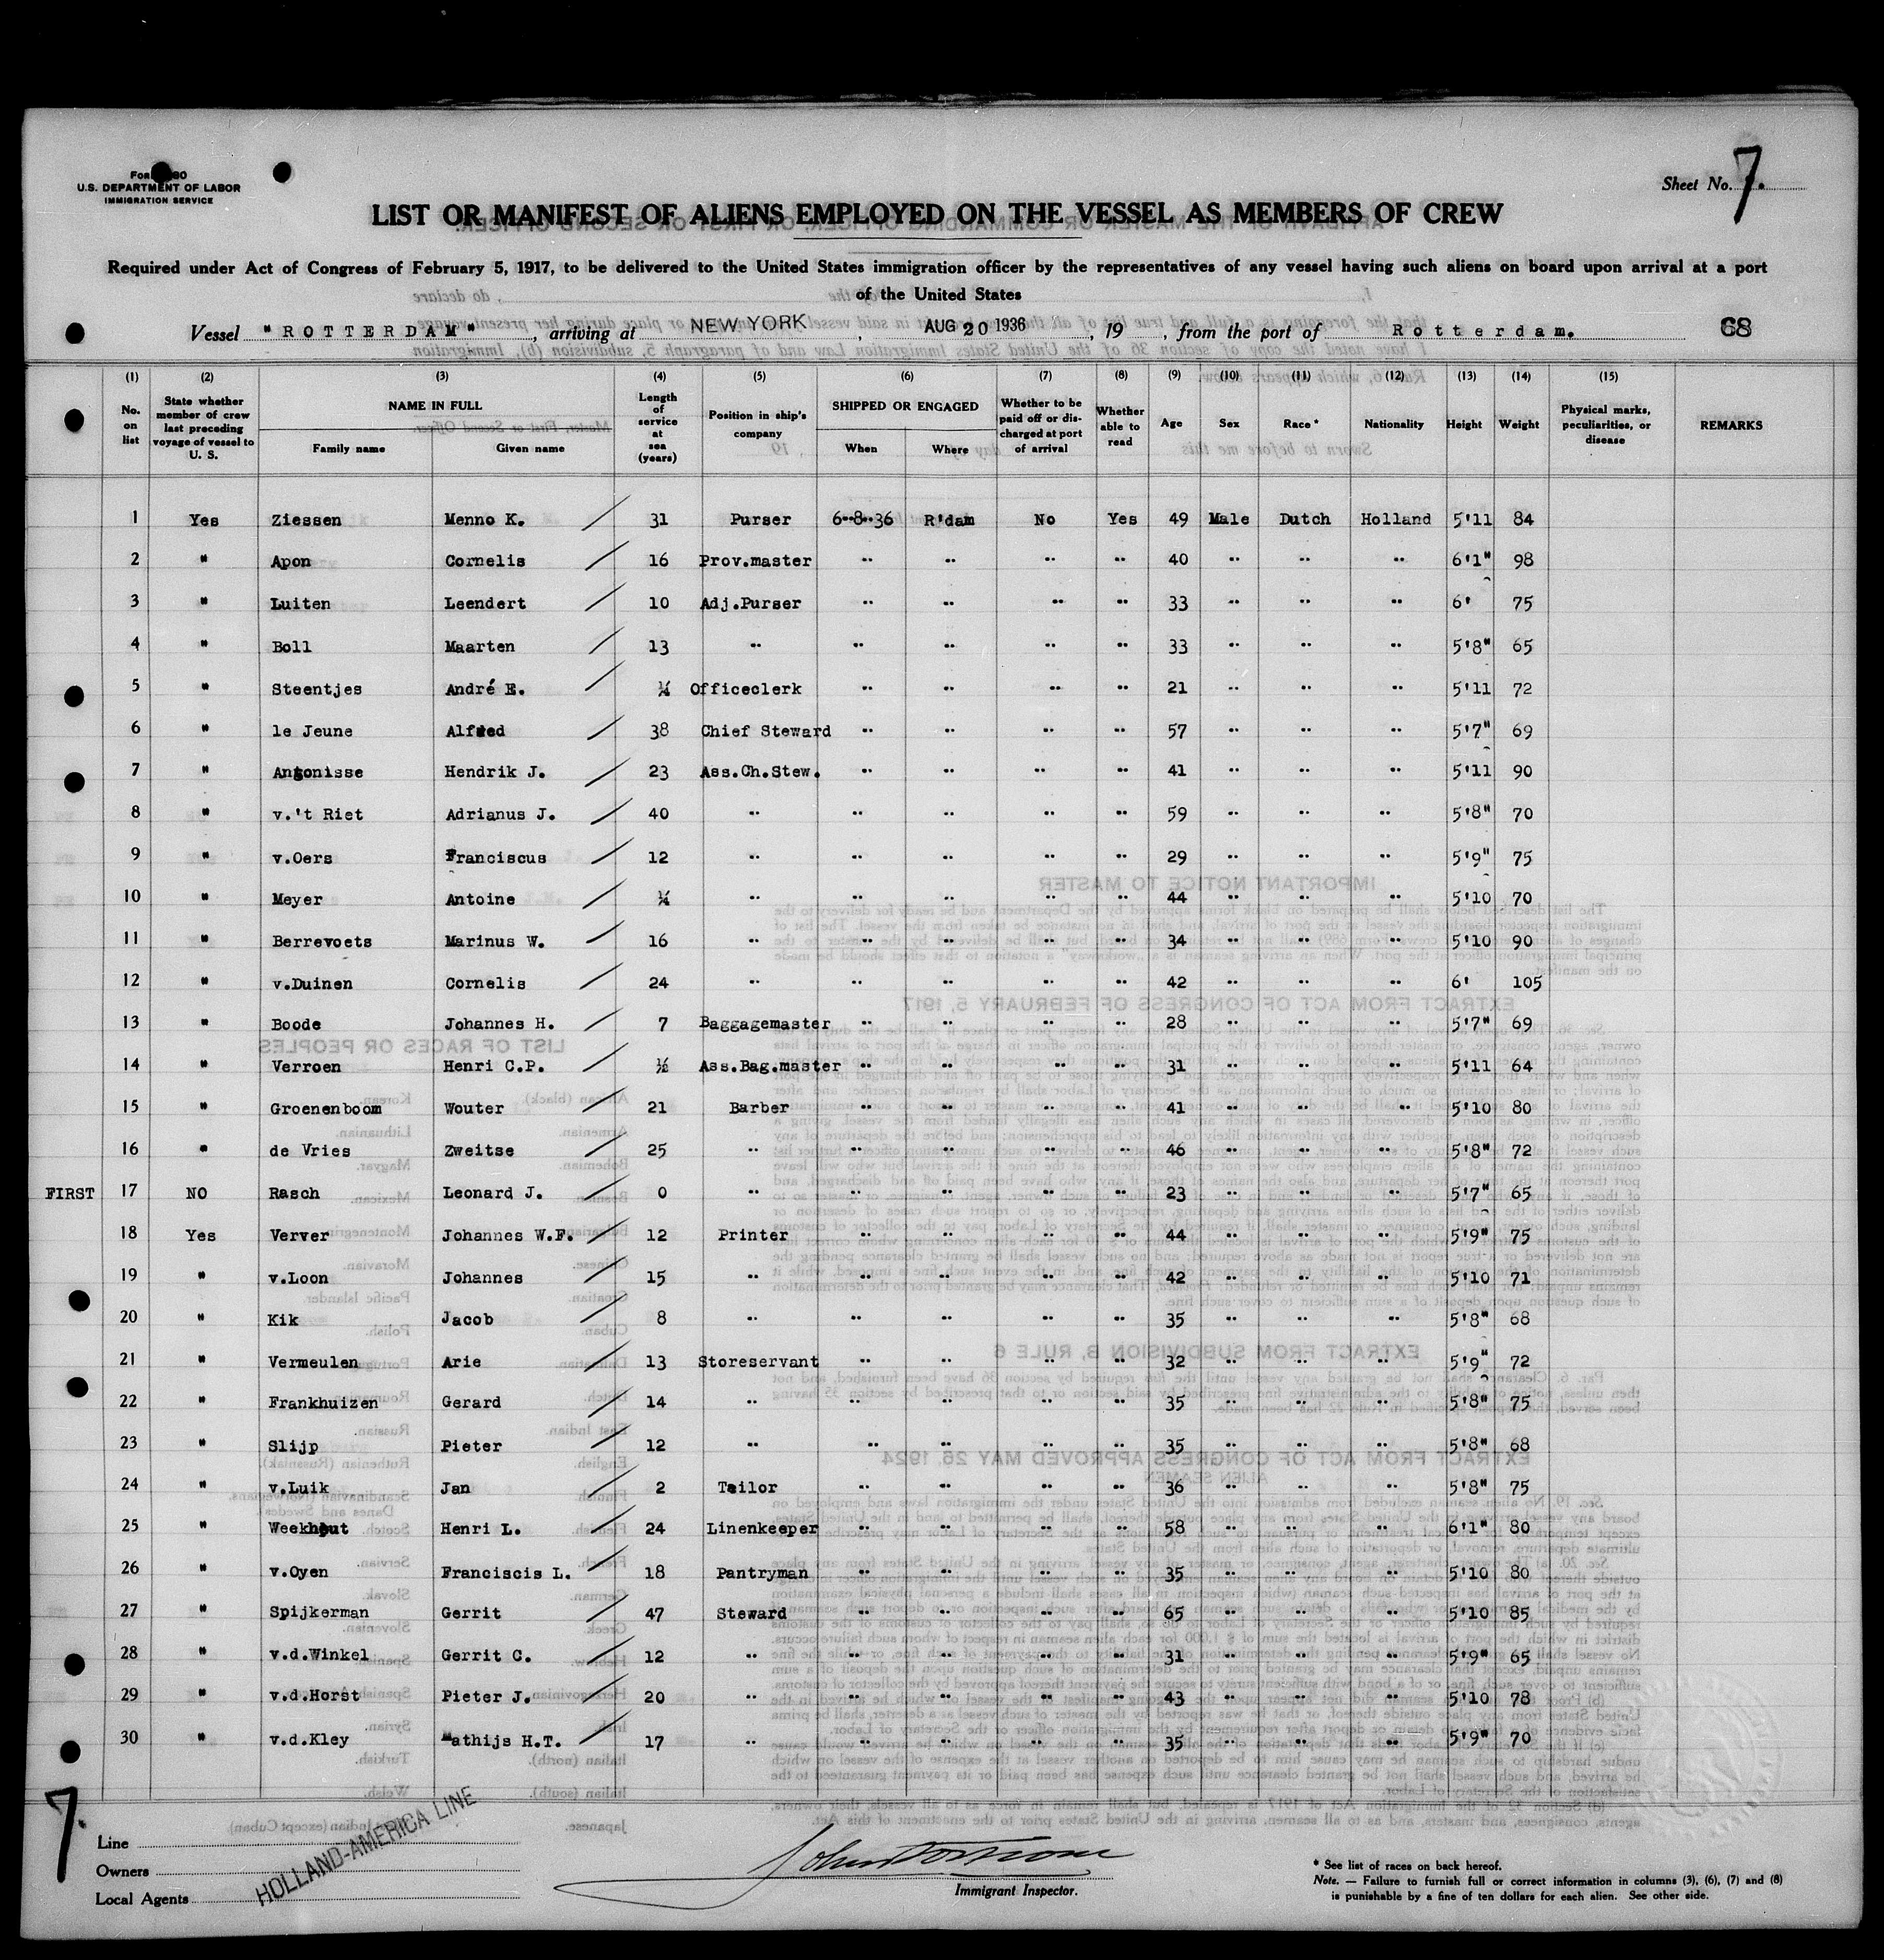 Form 680
U.S. DEPARTMENT OF LABOR
IMMIGRATION SERVICE
Sheet No. 7.
LIST OR MANIFEST OF ALIENS EMPLOYED ON THE VESSEL AS MEMBERS OF CREW
Required under Act of Congress of February 5, 1917, to be delivered to the United States immigration officer by the representatives of any vessel having such aliens on board upon arrival at a port
of the United States
Vessel "ROTTERDAM", arriving at NEW YORK, AUG 20 1936, 19 , from the port of Rotterdam. 68
(1) (2) (3) (4) (5) (6) (7) (8) (9) (10) (11) (12) (13) (14) (15)
No. on list | State whether member of crew last preceding voyage of vessel to U. S. | NAME IN FULL Family name Given name | Length of service at sea (years) | Position in ship's company | SHIPPED OR ENGAGED When Where | Whether to be paid off or discharged at port of arrival | Whether able to read | Age | Sex | Race * | Nationality | Height | Weight | Physical marks, peculiarities, or disease | REMARKS
1 Yes Ziessen Menno K. / 31 Purser 6-8-36 R'dam No Yes 49 Male Dutch Holland 5'11 84
2 " Apon Cornelis / 16 Prov.master " " " " 40 " " " 6'1" 98
3 " Luiten Leendert / 10 Adj.Purser " " " " 33 " " " 6' 75
4 " Boll Maarten / 13 " " " " " 33 " " " 5'8" 65
5 " Steentjes André E. / ¼ Officeclerk " " " " 21 " " " 5'11 72
6 " le Jeune Alfred / 38 Chief Steward " " " " 57 " " " 5'7" 69
7 " Antonisse Hendrik J. / 23 Ass.Ch.Stew. " " " " 41 " " " 5'11 90
8 " v.'t Riet Adrianus J. / 40 " " " " " 59 " " " 5'8" 70
9 " v.Oers Franciscus / 12 " " " " " 29 " " " 5'9" 75
10 " Meyer Antoine / ¼ " " " " " 44 " " " 5'10 70
11 " Berrevoets Marinus W. / 16 " " " " " 34 " " " 5'10 90
12 " v.Duinen Cornelis / 24 " " " " " 42 " " " 6' 105
13 " Boode Johannes H. / 7 Baggagemaster " " " " 28 " " " 5'7" 69
14 " Verroen Henri C.P. / ½ Ass.Bag.master " " " " 31 " " " 5'11 64
15 " Groenenboom Wouter / 21 Barber " " " " 41 " " " 5'10 80
16 " de Vries Zweitse / 25 " " " " " 46 " " " 5'8" 72
FIRST 17 NO Rasch Leonard J. / 0 " " " " " 23 " " " 5'7" 65
18 Yes Verver Johannes W.F. / 12 Printer " " " " 44 " " " 5'9" 75
19 " v.Loon Johannes / 15 " " " " " 42 " " " 5'10 71
20 " Kik Jacob / 8 " " " " " 35 " " " 5'8" 68
21 " Vermeulen Arie / 13 Storeservant " " " " 32 " " " 5'9" 72
22 " Frankhuizen Gerard / 14 " " " " " 35 " " " 5'8" 75
23 " Slijp Pieter / 12 " " " " " 35 " " " 5'8" 68
24 " v.Luik Jan / 2 Tailor " " " " 36 " " " 5'8" 75
25 " Weekhout Henri L. / 24 Linenkeeper " " " " 58 " " " 6'1" 80
26 " v.Oyen Franciscis L. / 18 Pantryman " " " " 35 " " " 5'10 80
27 " Spijkerman Gerrit / 47 Steward " " " " 65 " " " 5'10 85
28 " v.d.Winkel Gerrit C. / 12 " " " " " 31 " " " 5'9" 65
29 " v.d.Horst Pieter J. / 20 " " " " " 43 " " " 5'10 78
30 " v.d.Kley Mathijs H.T. / 17 " " " " " 35 " " " 5'9" 70
7.
Line
Owners
Local Agents
HOLLAND-AMERICA LINE
Immigrant Inspector.
* See list of races on back hereof.
Note. — Failure to furnish full or correct information in columns (3), (6), (7) and (8)
is punishable by a fine of ten dollars for each alien. See other side.